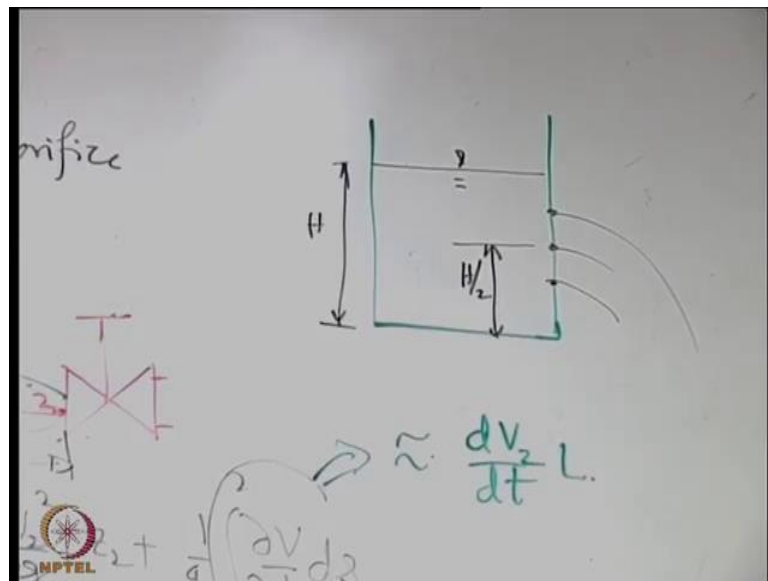 orifice
H
H/2
2
≈ dV₂/dt L.
2
z₂ + 1/g ∫ ∂V
NPTEL